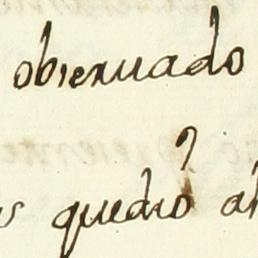 obseruado
quedò